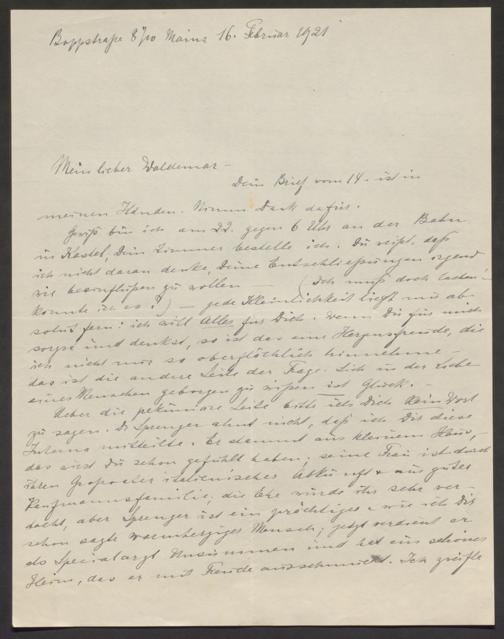 Boppstraße 8/10 Mainz 16. Februar 1921
Mein lieber Waldemar –
Dein Brief vom 14. ist in
meinen Händen. Nimm Dank dafür.
Gewiß bin ich am 22. gegen 6 Uhr an der Bahn
in Kastel, Dein Zimmer bestelle ich. Du weißt, daß
ich nicht daran denke, Deine Entschließungen irgend
wie beeinflußen zu wollen – (Ich muß doch lachen!
könnte ich es?) – jede Kleinlichkeit liegt mir ab-
solut fern: ich will Alles für Dich. Wenn Du für mich
sorgst und denkst, so ist das eine Herzensfreude, die
ich nicht nur so oberflächlich hinnehme –
das ist die andere Seite der Frage. Sich in der Liebe
eines Menschen geborgen zu wissen ist Glück. –
Ueber die pekuniäre Seite bitte ich Dich kein Wort
zu sagen. Dr Sprenger ahnt nicht, daß ich Dir diese
Interna mitteilte. Er stammt aus kleinem Haus,
das wirst Du schon gefühlt haben, seine Frau ist durch
ihren Großvater italienischer Abkunft + aus guter
Kaufmannsfamilie, die Ehe wurde ihr sehr ver-
dacht, aber Sprenger ist ein prächtiger + wie ich Dir
schon sagte warmherziger Mensch; jetzt verdient er
als Specialarzt Unsummen und hat ein schönes
Heim, das er mit Freude ausschmückt. Ich